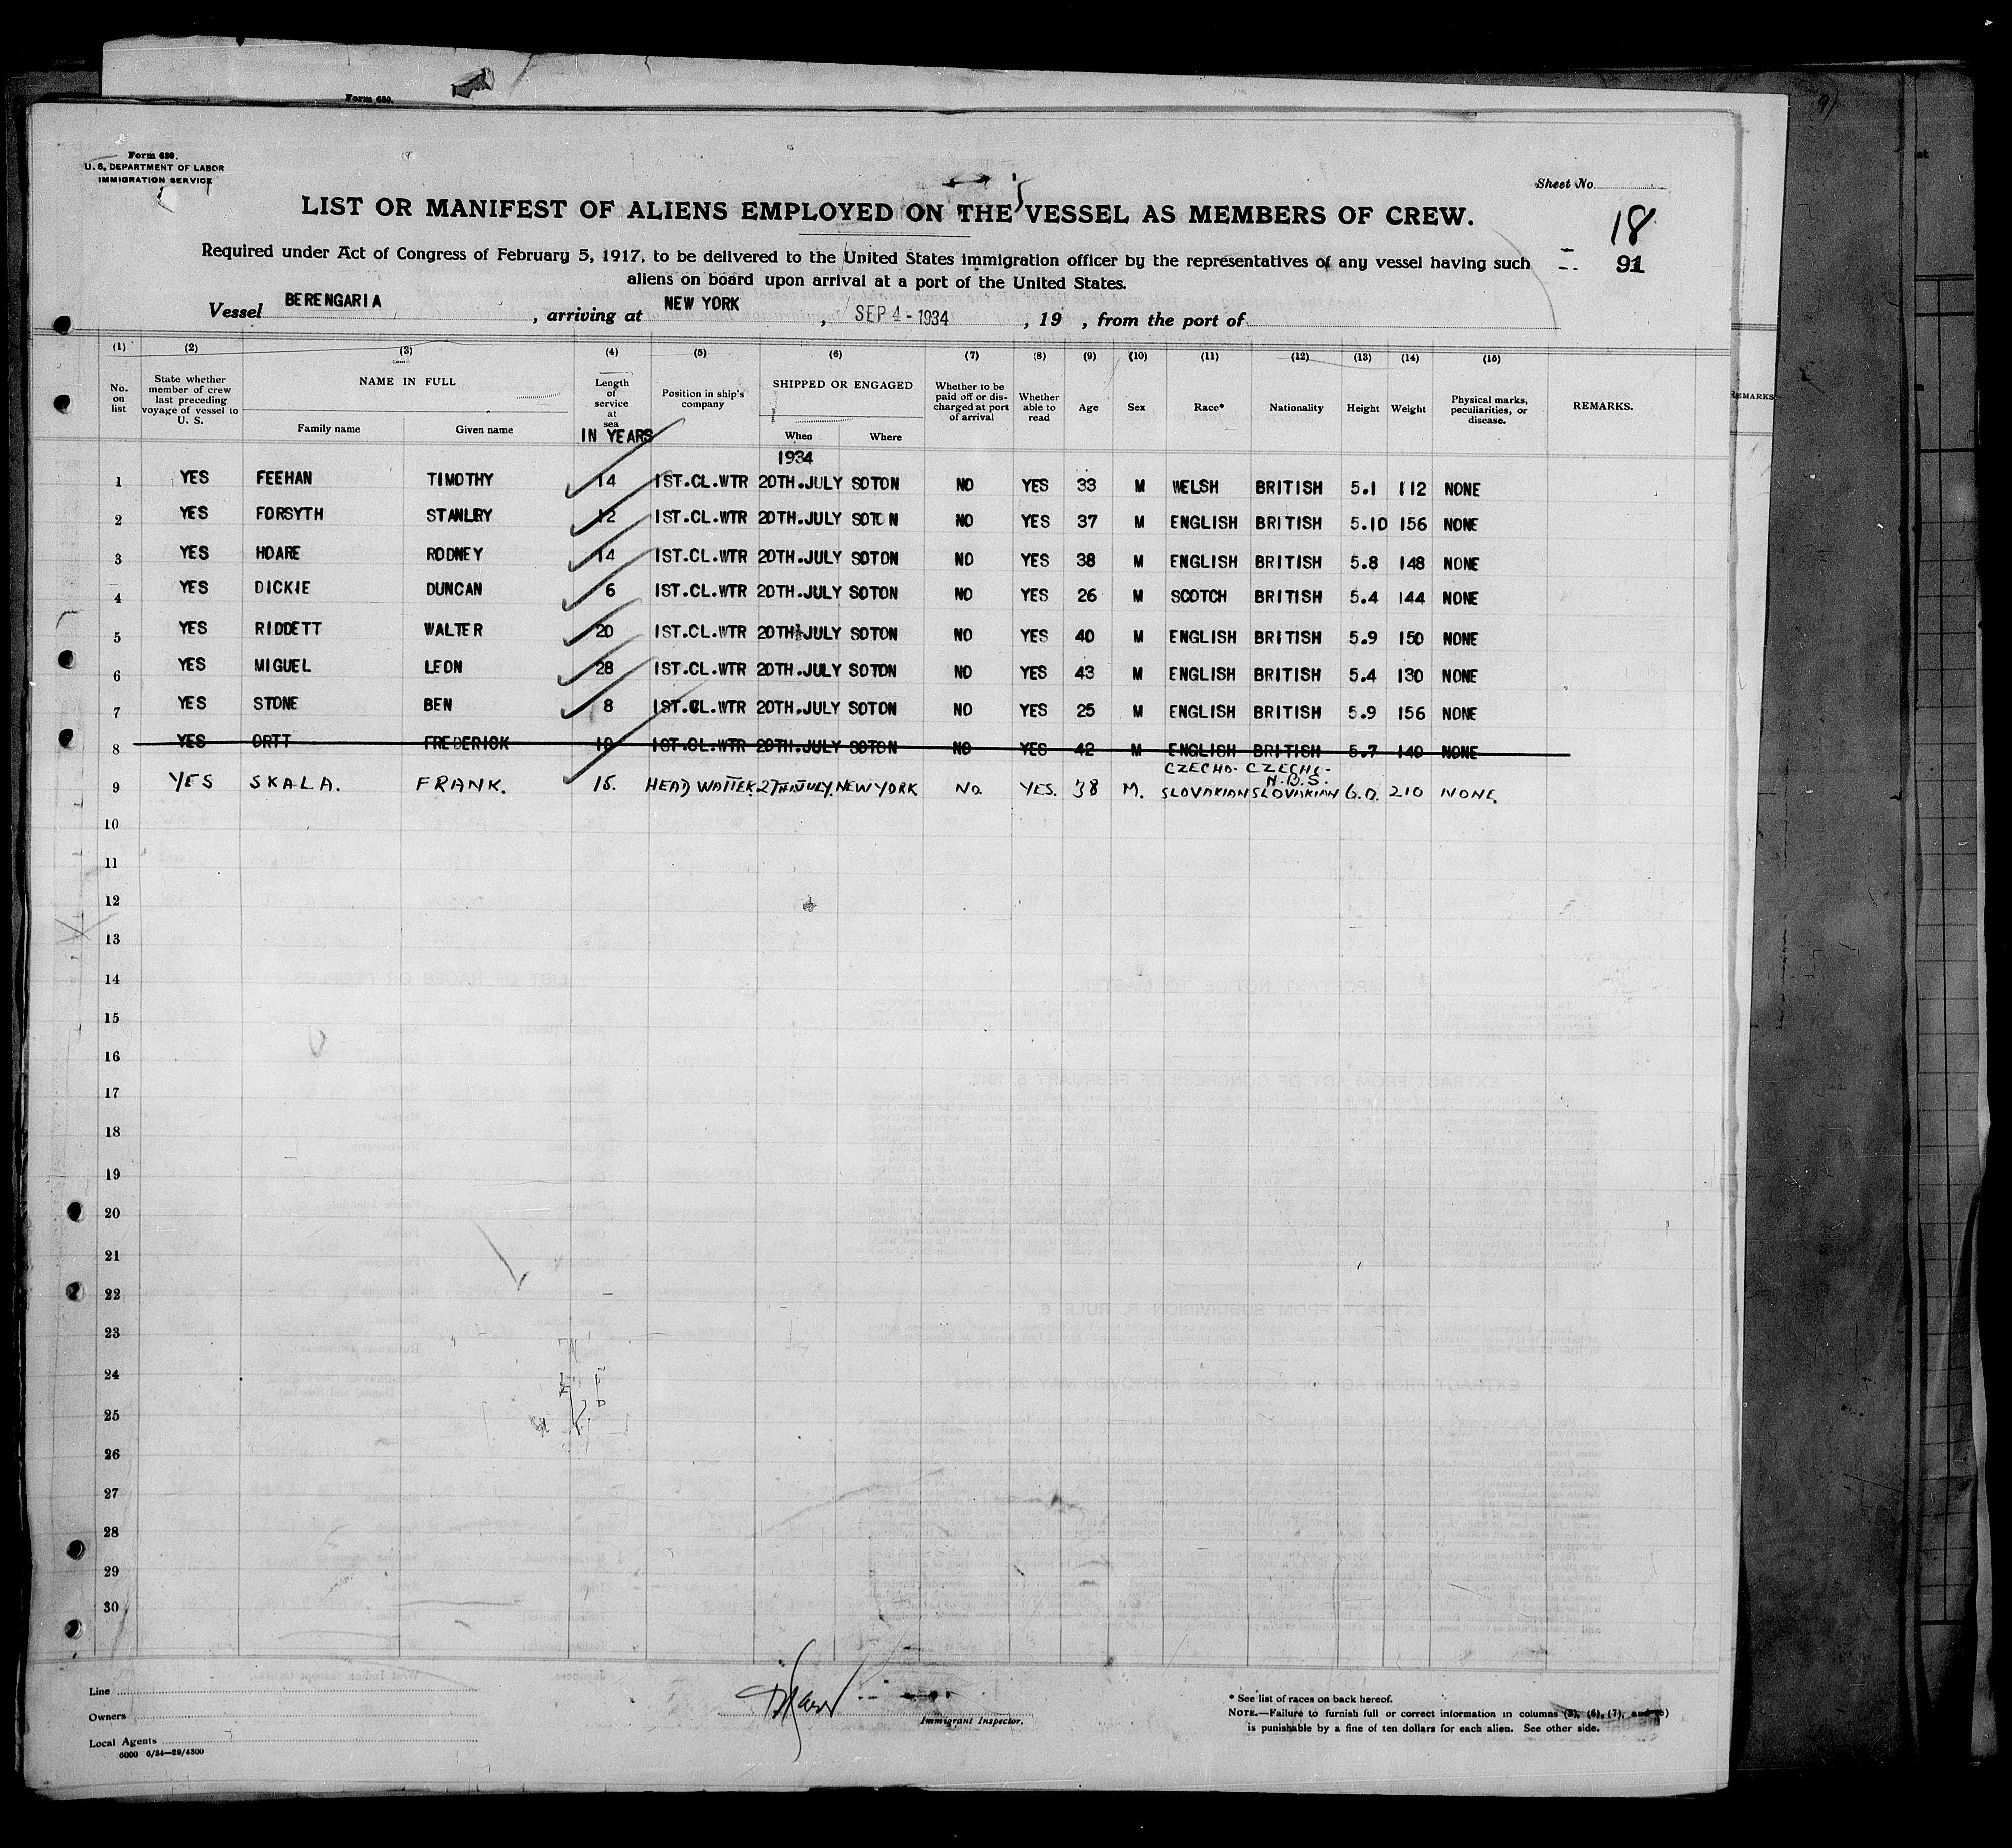 Form 680.
Form 680.
U. S. DEPARTMENT OF LABOR
IMMIGRATION SERVICE
Sheet No.
LIST OR MANIFEST OF ALIENS EMPLOYED ON THE VESSEL AS MEMBERS OF CREW.
18
Required under Act of Congress of February 5, 1917, to be delivered to the United States immigration officer by the representatives of any vessel having such
91
aliens on board upon arrival at a port of the United States.
Vessel BERENGARIA, arriving at NEW YORK, SEP 4 - 1934, 19 , from the port of
(1) (2) (3) (4) (5) (6) (7) (8) (9) (10) (11) (12) (13) (14) (15)
No. on list
State whether member of crew last preceding voyage of vessel to U. S.
NAME IN FULL
Family name Given name
Length of service at sea
IN YEARS
Position in ship's company
SHIPPED OR ENGAGED
When Where
1934
Whether to be paid off or discharged at port of arrival
Whether able to read
Age Sex Race* Nationality Height Weight
Physical marks, peculiarities, or disease.
REMARKS.
REMARKS
1 YES FEEHAN TIMOTHY 14 1ST.CL.WTR 20TH.JULY SOTON NO YES 33 M WELSH BRITISH 5.1 112 NONE
2 YES FORSYTH STANLRY 12 1ST.CL.WTR 20TH.JULY SOTON NO YES 37 M ENGLISH BRITISH 5.10 156 NONE
3 YES HOARE RODNEY 14 1ST.CL.WTR 20TH.JULY SOTON NO YES 38 M ENGLISH BRITISH 5.8 148 NONE
4 YES DICKIE DUNCAN 6 1ST.CL.WTR 20TH.JULY SOTON NO YES 26 M SCOTCH BRITISH 5.4 144 NONE
5 YES RIDDETT WALTER 20 1ST.CL.WTR 20TH.JULY SOTON NO YES 40 M ENGLISH BRITISH 5.9 150 NONE
6 YES MIGUEL LEON 28 1ST.CL.WTR 20TH.JULY SOTON NO YES 43 M ENGLISH BRITISH 5.4 130 NONE
7 YES STONE BEN 8 1ST.CL.WTR 20TH.JULY SOTON NO YES 25 M ENGLISH BRITISH 5.9 156 NONE
8 YES ORTT FREDERICK 1ST.CL.WTR 20TH.JULY SOTON NO YES 42 M ENGLISH BRITISH 5.7 140 NONE
9 YES SKALA. FRANK. 15. HEAD WAITER. 27TH JULY. NEW YORK NO. YES. 38 M. CZECHO-SLOVAKIAN CZECHO-SLOVAKIAN N.B.S. 6.0. 210 NONE.
10
11
12
13
14
15
16
17
18
19
20
21
22
23
24
25
26
27
28
29
30
Line
Owners
Local Agents
6000 6/34—29/4300
Immigrant Inspector.
* See list of races on back hereof.
NOTE.—Failure to furnish full or correct information in columns (3), (6), (7), and
is punishable by a fine of ten dollars for each alien. See other side.